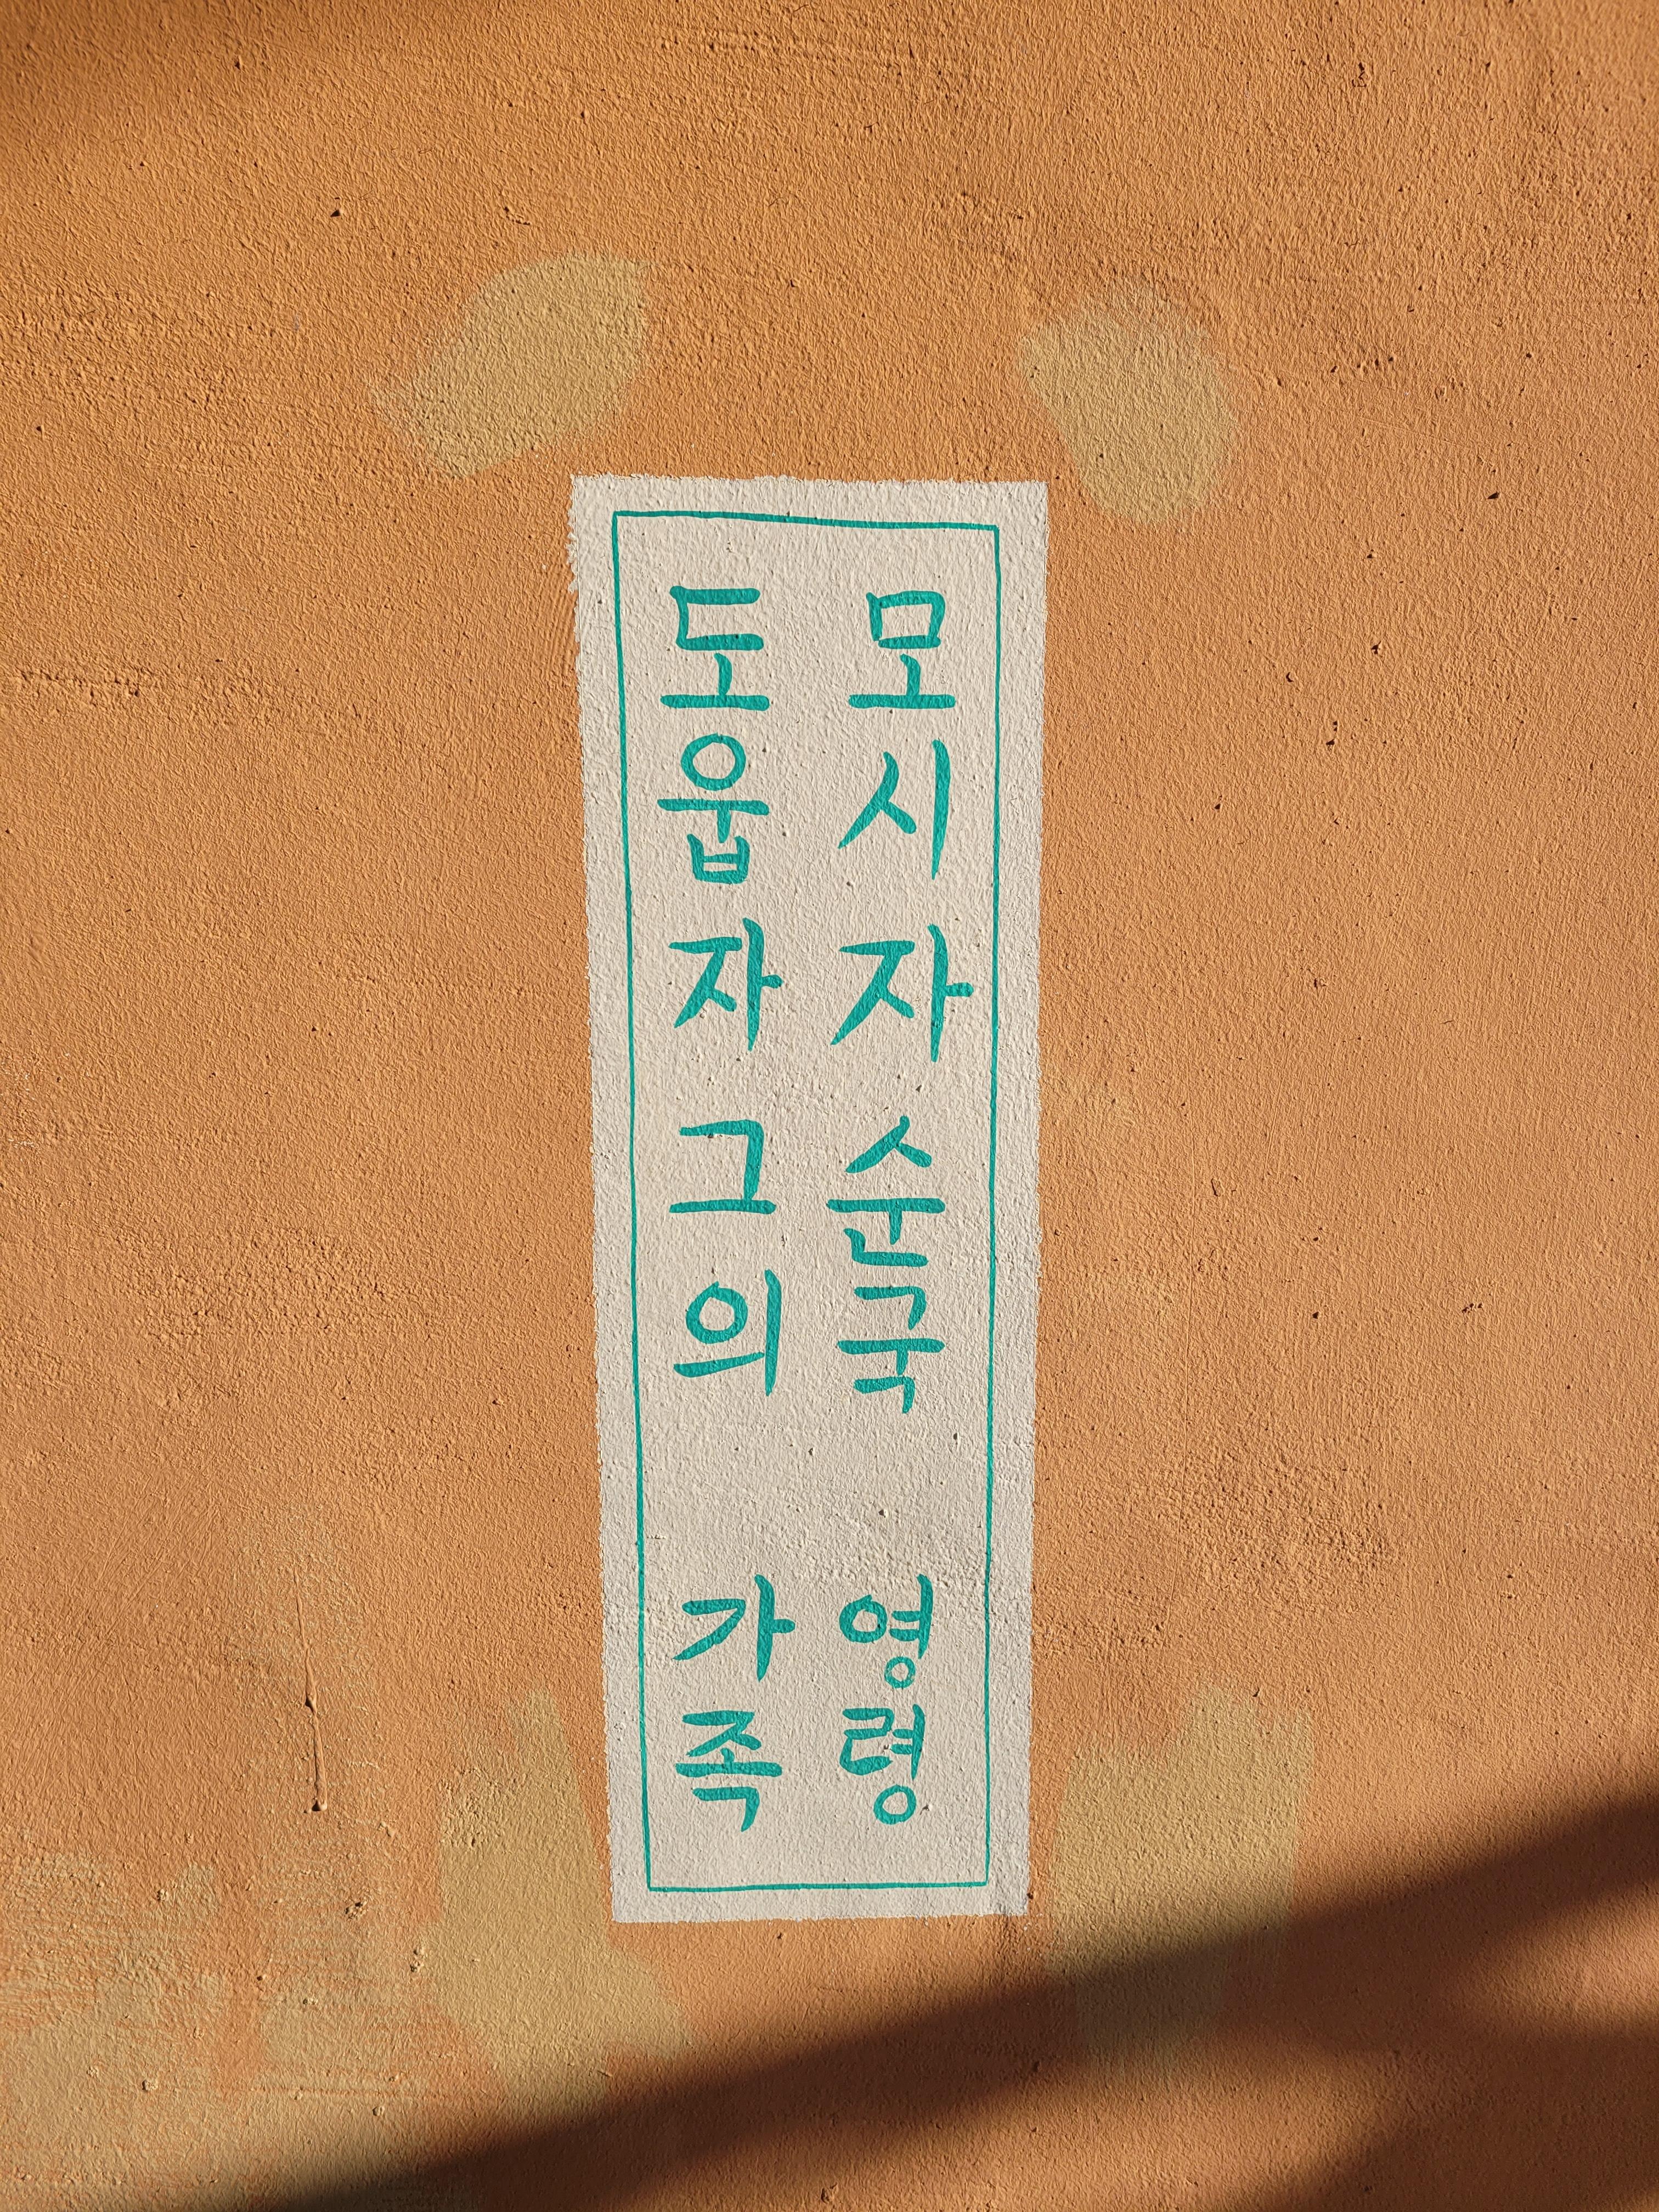 모시자 순국 영령
도웁자 그의 가족